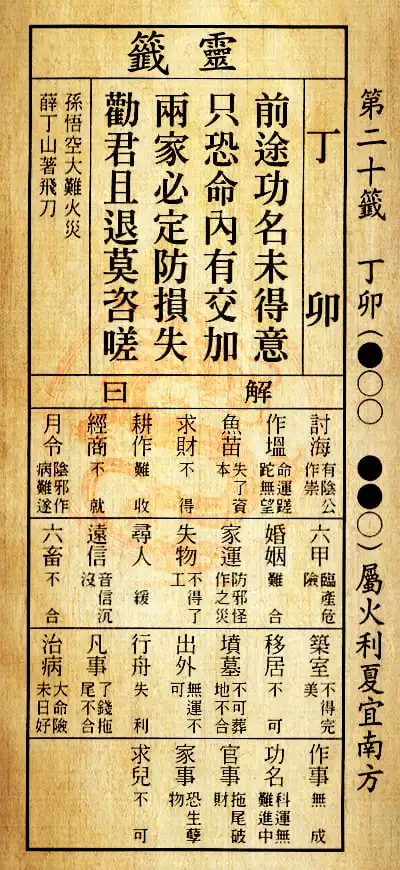 第二十籤　丁卯(●○○　●●○)屬火利夏宜南方
靈籤
丁卯
前途功名未得意
只恐命內有交加
兩家必定防損失
勸君且退莫咨嗟
孫悟空大難火災
薛丁山著飛刀
解曰
討海 有陰公作崇
作塭 命運蹉跎無望
魚苗 失了資本
求財 不得
耕作 難收
經商 不就
月令 陰邪作病難遂
六甲 臨產危險
婚姻 難合
家運 防邪怪作之災
失物 不得了工
尋人 緩
遠信 音信沉沒
六畜 不合
築室 不得完美
移居 不可
墳墓 不可葬地不合
出外 無運不可
行舟 失利
凡事 了錢拖尾不合
治病 大命險未日好
作事 無成
功名 科運無難進中
官事 拖尾破財
家事 恐生孽物
求兒 不可